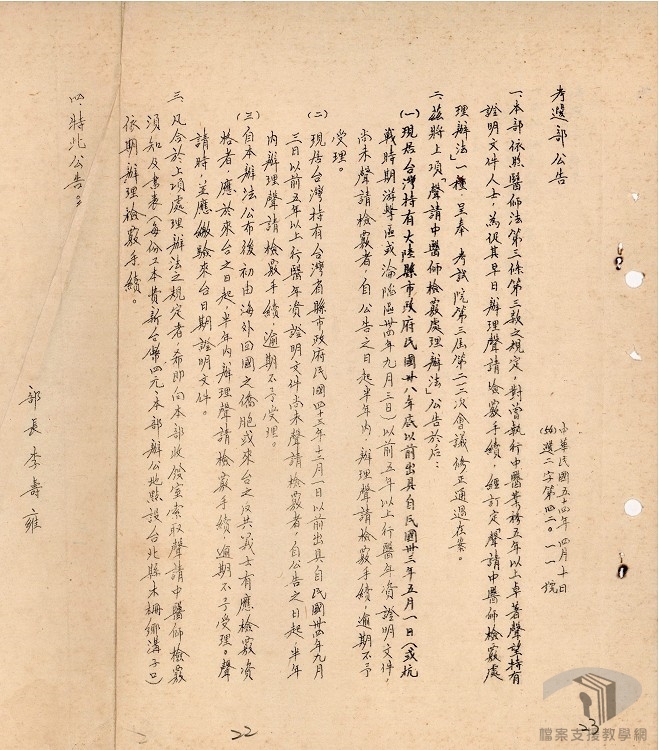 考選部公告
中華民國五十四年四月十日
(54)選二字第四二〇一一號
一、本部依照醫師法第三條第三款之規定，對曾執行中醫業務五年以上卓著聲望持有
證明文件人士，為促其早日辦理聲請檢覈手續，經訂定聲請中醫師檢覈處
理辦法」一種呈奉　考試院第三屆第二二次會議修正通過在案。
二、茲將上項「聲請中醫師檢覈處理辦法」公告於后：
(一)現居台灣持有大陸縣市政府民國卅八年底以前出具自民國卅三年五月一日（或抗
戰時期游擊區或淪陷區卅四年九月三日）以前五年以上行醫年資證明文件，
尚未聲請檢覈者，自公告之日起半年內，辦理聲請檢覈手續，逾期不予
受理。
(二)現居台灣持有台灣省縣市政府民國四十三年十二月一日以前出具自民國卅四年九月
三日以前五年以上行醫年資證明文件尚未聲請檢覈者，自公告之日起，半年
內辦理聲請檢覈手續，逾期不予受理。
(三)自本辦法公布後初由海外回國之僑胞或來台之反共義士有應檢覈資
格者，應於來台之日起，半年內辦理聲請檢覈手續，逾期不予受理。聲
請時，並應繳驗來台日期證明文件。
三、凡合於上項處理辦法之規定者，希即向本部收發室索取聲請中醫師檢覈
須知及書表（每份工本費新台幣四元、本部辦公地點設台北縣木柵鄉溝子口）
依期辦理檢覈手續。
四、特此公告。
部長李壽雍
22
23
檔案支援教學網